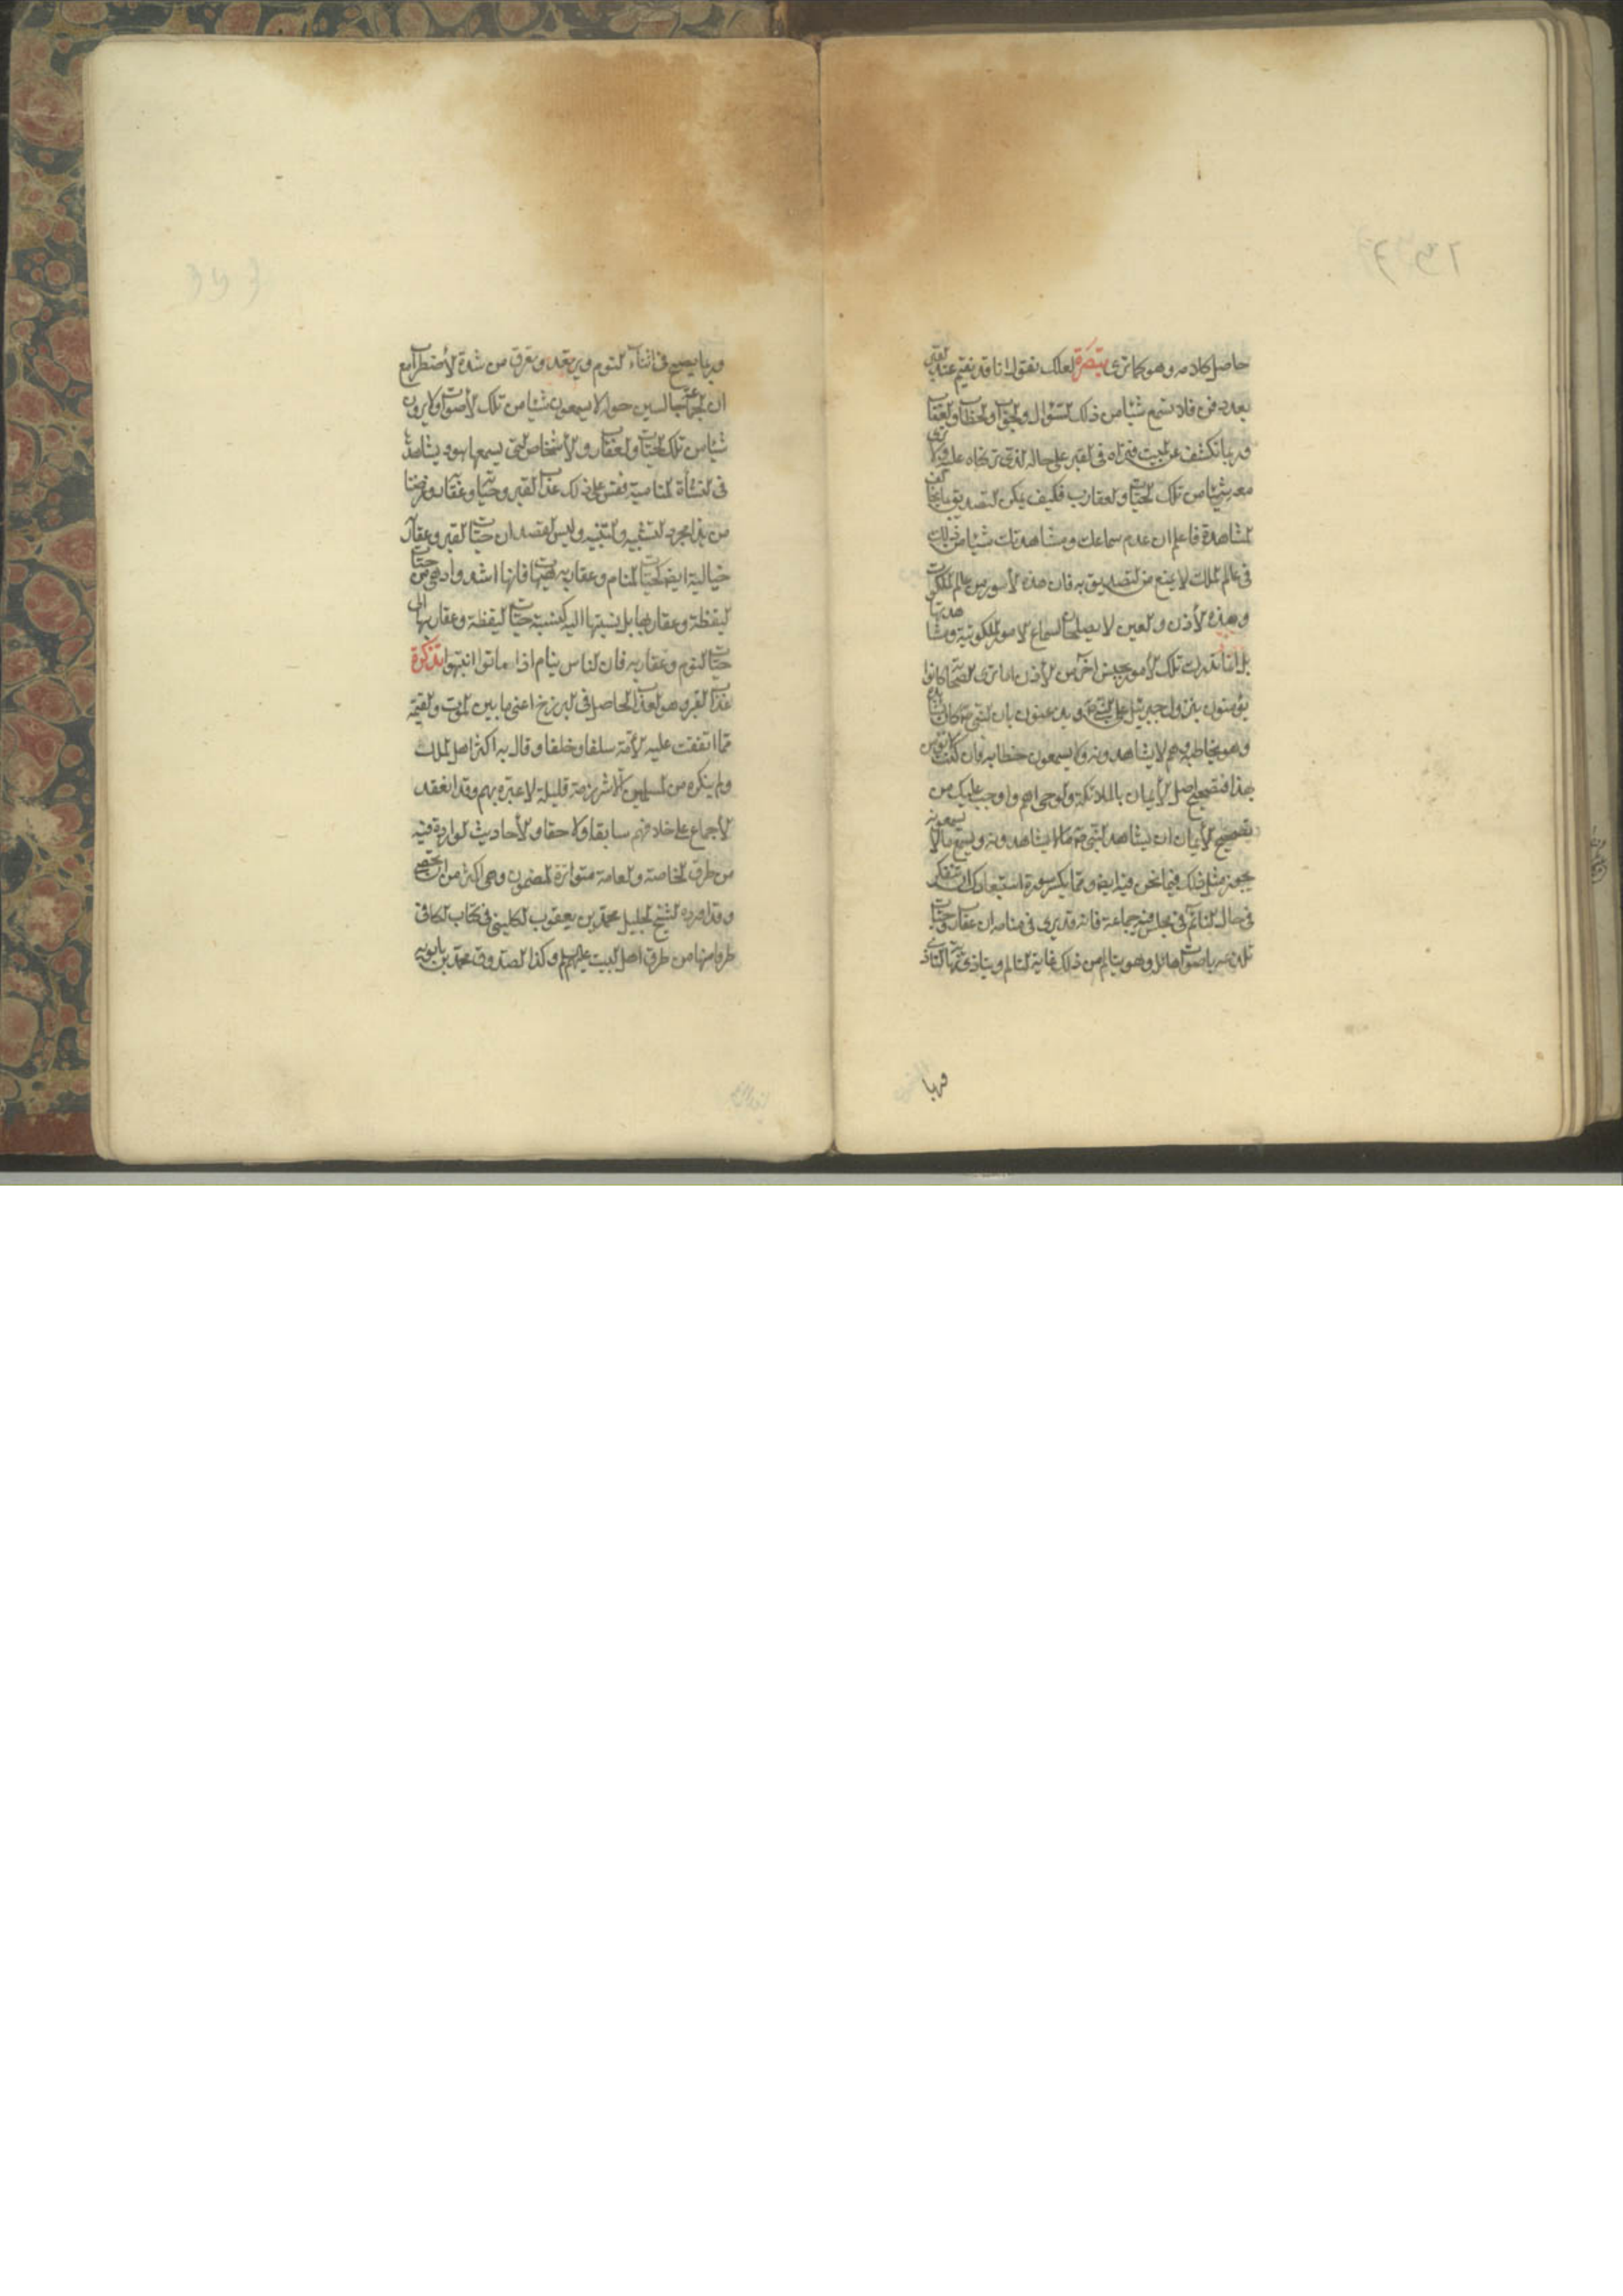 حاصل كلامه وهو كما ترى تبصرة لعلك تقول انا قد نقيم عند القبر
بعد دفن فلا نسمع شيئا من ذلك السؤال والجواب والخطاب والعقاب
وربما نكشف عن الميت فنراه في القبر على حاله الذي تركناه عليه ولا نرى
معه شيئا من تلك الحيات والعقارب فكيف يمكن التصديق بما يخالف
المشاهدة فاعلم ان عدم سماعك ومشاهدتك شيئا من ذلك
في عالم الملك لا يمنع من التصديق به فان هذه الأمور من عالم الملكوت
وهذه الأذن والعين لا يصلحان لسماع الامور الملكوتية ومشاهدتها
بل انما تدرك تلك الأمور بحس اخر من الأذن اما ترى الصحابة كانوا
يؤمنون بنزول جبرئيل على النبي ص ويذعنون بان النبي ص كان يشاهده
وهو يخاطبه وهم لا يشاهدونه ولا يسمعون خطابه فان كنت لا تؤمن
بهذا فتصحيح اصل الأيمان بالملائكة والوحي اهم واوجب عليك من
تصحيح الأيمان ان يشاهد النبي ص ما لا يشاهدونه ويسمع ما لا يسمعونه
يجوز مثل ذلك فيما نحن فيه ايضا ومما يكسر سورة استبعادك ان تتفكر
في حال النائم في مجلس فيه جماعة فانه قد يرى في منامه ان عقارب وحيات
تلدغه باصوات هائل وهو يتالم من ذلك غاية التالم ويتاذى نهاية التاذي
وربما
وربما يصيح في اثناء النوم ويرتعد ويعرق من شدة الأضطراب مع
ان الجماعة جالسين حوله لا يسمعون شيئا من تلك الأصوات ولا يرون
شيئا من تلك الحيات والعقارب والأشخاص التي يسمعها هو ويشاهدها
في النشأة المنامية فقس على ذلك عذاب القبر وحياته وعقاربه وغرضنا
من هذا مجرد التشبيه والتنبيه وليس المقصد ان حيات القبر وعقاربه
خيالية ايضا كحيات المنام وعقاربه هيهات فانها اشد وادهى من حيات
اليقظة وعقاربها بل نسبتها اليه كنسبة حيات اليقظة وعقاربها الى
حيات النوم وعقاربه فان الناس ينام اذا ماتوا انتبهوا تذكرة
عذاب القبر وهو العذاب الحاصل في البرزخ اعني ما بين الموت والقيمة
مما اتفقت عليه الأمة سلفا وخلفا وقال به اكثر اهل الملل
ولم ينكره من المسلمين الا شرزمة قليلة لا عبرة بهم وقد انعقد
الأجماع على خلافهم سابقا ولاحقا والأحاديث الواردة فيه
من طرق الخاصة والعامة متواترة المضمون وهي اكثر من ان تحصى
وقد اورد الشيخ الجليل محمد بن يعقوب الكليني في كتاب الكافي
طرفا منها من طرق اهل البيت عليهم السلام وكذا الصدوق محمد بن بابويه